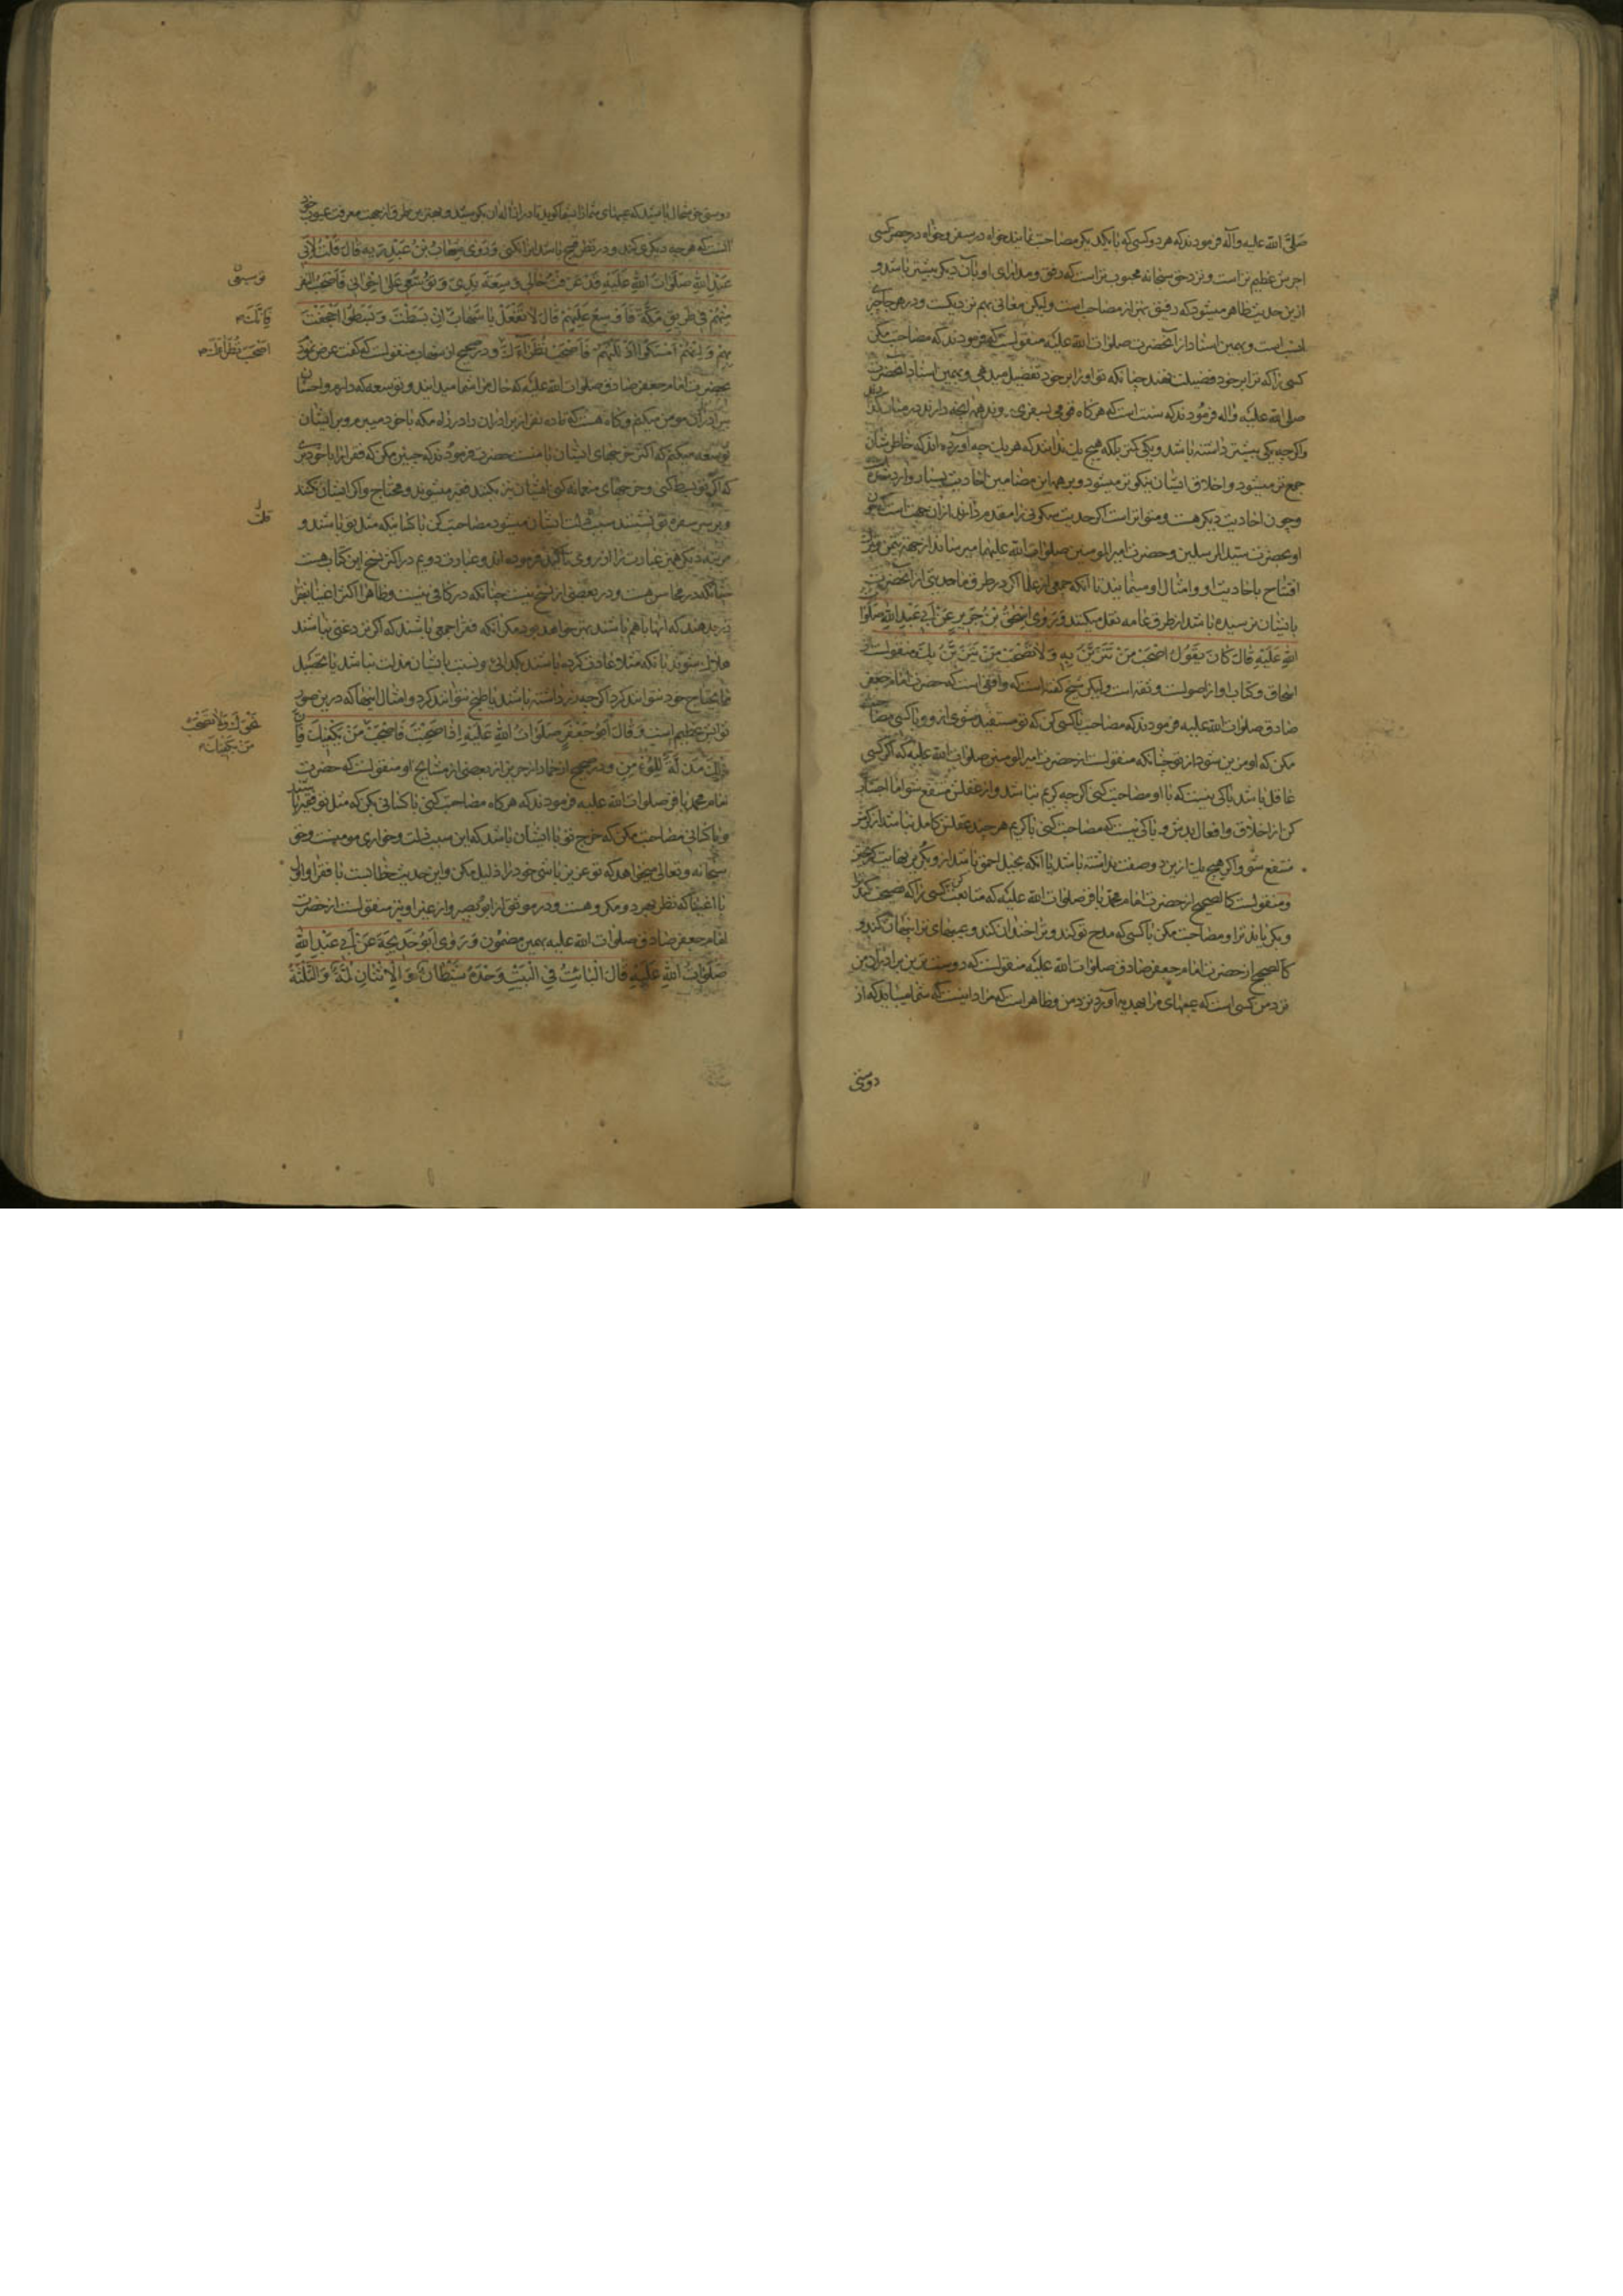 صلی الله علیه وآله فرمودند که هر دو کسی که با یکدیکر مصاحبت نمایند خواه در سفر و خواه در حضر کسی
اجرش عظیم تر است و نزد حق سبحانه محبوب تر است که رفق و مدارای او با آن دیکر بیشتر باشد و
ازین حدیث ظاهر میشود که رفیق بهتر از مصاحب است ولیکن معانی بهم نزدیکست و در هر جا چیزی
انسب است و بهمین اسناد از آنحضرت صلوات الله علیه منقولست که فرمودند که مصاحبت مکن
کسی را که ترا بر خود فضیلت ننهد چنانکه تو او را بر خود تفضیل میدهی و بهمین اسناد آنحضرت
صلی الله علیه واله فرمودند که سنت است که هرکاه قومی بسفری روند همه آنچه دارند در میان کنند
واکرچه یکی بیشتر داشته باشد و یکی کمتر بلکه هیچ یك ندانند که هر یك چه آورده اند که خاطر شان
جمع تر میشود و اخلاق ایشان نیکوتر میشود و بر همه این مضامین احادیث بسیار وارد شده
وچون احادیث دیکر هست و متواتر است اکر حدیث سکونی را مقدم داشته اند از آن جهت است که چون
او بحضرت سید المرسلین و حضرت امیر المومنین صلوات الله علیهما میرساند از جهة تیمن و تبرك
افتتاح باحادیث او و امثال او مینمایند تا آنکه جمعی از علما اکر در طرق ما حدیثی از آنحضرت
بایشان نرسیده باشد از طرق عامه نقل میکنند وَرَوی اِسْحٰقُ بْنُ جَریرٍ عَنْ اَبي عَبْدِ اللهِ صَلَوٰاتُ
اللهِ عَلَیْهِ قٰالَ کٰانَ یَقُولُ اصْحَبْ مَنْ تَتَزَیَّنُ بِهِ وَلاٰ تَصْحَبْ مَنْ یَتَزَیَّنُ بِكَ منقولست از
اسحاق و کتاب او از اصولست و ثقه است ولیکن شیخ کفته است که واقفی است که حضرت امام جعفر
صادق صلوات الله علیه فرمودند که مصاحبت با کسی کن که تو مستفید شوی ازو و با کسی مصاحبت
مکن که او مزین شود از تو چنانکه منقولست از حضرت امیر المومنین صلوات الله علیه که اکر کسی
عاقل باشد باکی نیست که با او مصاحبت کنی اکرچه کریم نباشد و از عقلش منتفع شو اما اجتناب
کن از اخلاق و افعال بدش و باکی نیست که مصاحبت کنی با کریم هرچند عقلش کامل نباشد از کرمش
منتفع شو واکر هیچ یك ازین دو صفت نداشته باشد یا آنکه بخیل احمق باشد ازو بکریز نهایت کریختن
ومنقولست کالصحیح از حضرت امام محمد باقر صلوات الله علیه که متابعت کن کسی را که نصیحت کند ترا
وبکریاند ترا و مصاحبت مکن با کسی که مدح تو کند و ترا خندان کند و عیبهای ترا پنهان کند و
کالصحیح از حضرت امام جعفر صادق صلوات الله علیه منقولست که دوست ترین برادران من
نزد من کسی است که عیبهای مرا بهدیه آورد نزد من و ظاهر است که مراد اینست که شما میباید که از
دوستی
دوستی خوشحال باشید که عیبهای شما را بشما کوید تا در ازاله آن بکوشید و بهترین طرق از جهت معرفت عیوب خود
آنست که هرچه دیکری کند و در نظر قبیح باشد آنرا نکنی وَرَوی شِهٰابُ بْنُ عَبْدِ رَبِّهِ قٰالَ قُلْتُ لِاَبي
عَبْدِ اللهِ صَلَوٰاتُ اللهِ عَلَیْهِ قَدْ عَرَفْتَ حٰالي وَسِعَةَ یَدِيَ وَتَوَسُّعي عَلیٰ اِخْوٰاني فَاَصْحَبُ النَّفَرَ
وتوسیعی
مِنْهُمْ في طَریقِ مَکَّةَ فَاُوَسِّعُ عَلَیْهِمْ قٰالَ لاٰ تَفْعَلْ یٰا شِهٰابُ اِنْ بَسَطْتَ وَبَسَطُوا اَجْحَفْتَ
بِهِمْ وَاِنْ هُمْ اَمْسَکُوا اَذْلَلْتَهُمْ فَاصْحَبْ نُظَرٰاءَكَ ودر صحیح از شهاب منقولست که کفت عرض نمودم
اصحب نظراءك
بحضرت امام جعفر صادق صلوات الله علیه که حال مرا شما میدانید و توسعه که دارم و احسان
ببرادران مومن میکنم وکاه هست که تا ده نفر از برادران را در راه مکه با خود میبرم و بر ایشان
توسعه میکنم که اکثر خرجهای ایشان با منست حضرت فرمودند که چنین مکن که فقرا را با خود بری
که اکر تو بسط کنی و خرجهای منعمانه کنی ایشان نیز بکنند فقیر میشوند و محتاج واکر ایشان نکنند
وبر سر سفره تو نشینند سبب ذلت ایشان میشود مصاحبت کن با کسانیکه مثل تو باشند و
مرتبه دیکر همین عبارت را از روی تاکید فرموده اند و عبارت دویم در اکثر نسخ این کتاب هست
چنانکه در محاسن هست و در بعضی از نسخ نیست چنانکه در کافی نیست وظاهرا اکثر اغنیا بفقرا
قدر دهند که آنها با هم باشند بهتر خواهد بود مکر آنکه فقرا جمعی باشند که اکر نزد غنی نباشند
هلاك شوند یا آنکه مثلا عادت کرده باشند بکدائی و نسبت بایشان مذلت نباشد یا تحصیل
ما یحتاج خود نتوانند کرد اکرچه زر داشته باشند یا طبخ نتوانند کرد و امثال اینها که درین صور
ثوابش عظیم است وَقٰالَ اَبُو جَعْفَرٍ صَلَوٰاتُ اللهِ عَلَیْهِ اِذٰا صَحِبْتَ فَاصْحَبْ مَنْ یَکْفیكَ فَاِنَّ
نحوك ولا تصحب
من یکفیك
ذٰلِكَ مَذَلَّةٌ لِلْمُؤْمِنِ ودر صحیح از حماد از حریز از بعضی از مشایخ او منقولست که حضرت
امام محمد باقر صلوات الله علیه فرمودند که هرکاه مصاحبت کنی با کسانی بکن که مثل تو فقیر باشند
وبا کسانی مصاحبت مکن که خرج تو با ایشان باشد که این سبب ذلت وخواری مومنست وحق
سبحانه و تعالی میخواهد که تو عزیز باشی خود را ذلیل مکن و این حدیث خطابست با فقرا واولی
با اغنیا که نظر بهر دو مکروهست و در موثق از ابو بصیر و از غیر او نیز منقولست از حضرت
امام جعفر صادق صلوات الله علیه بهمین مضمون وَرَوی اَبُو خَدیجَةَ عَنْ اَبي عَبْدِ اللهِ
صَلَوٰاتُ اللهِ عَلَیْهِ قٰالَ الْبٰائِتُ فِي الْبَیْتِ وَحْدَهُ شَیْطٰانٌ وَالْاِثْنٰانِ لُمَّةٌ وَالثَّلٰثَةُ